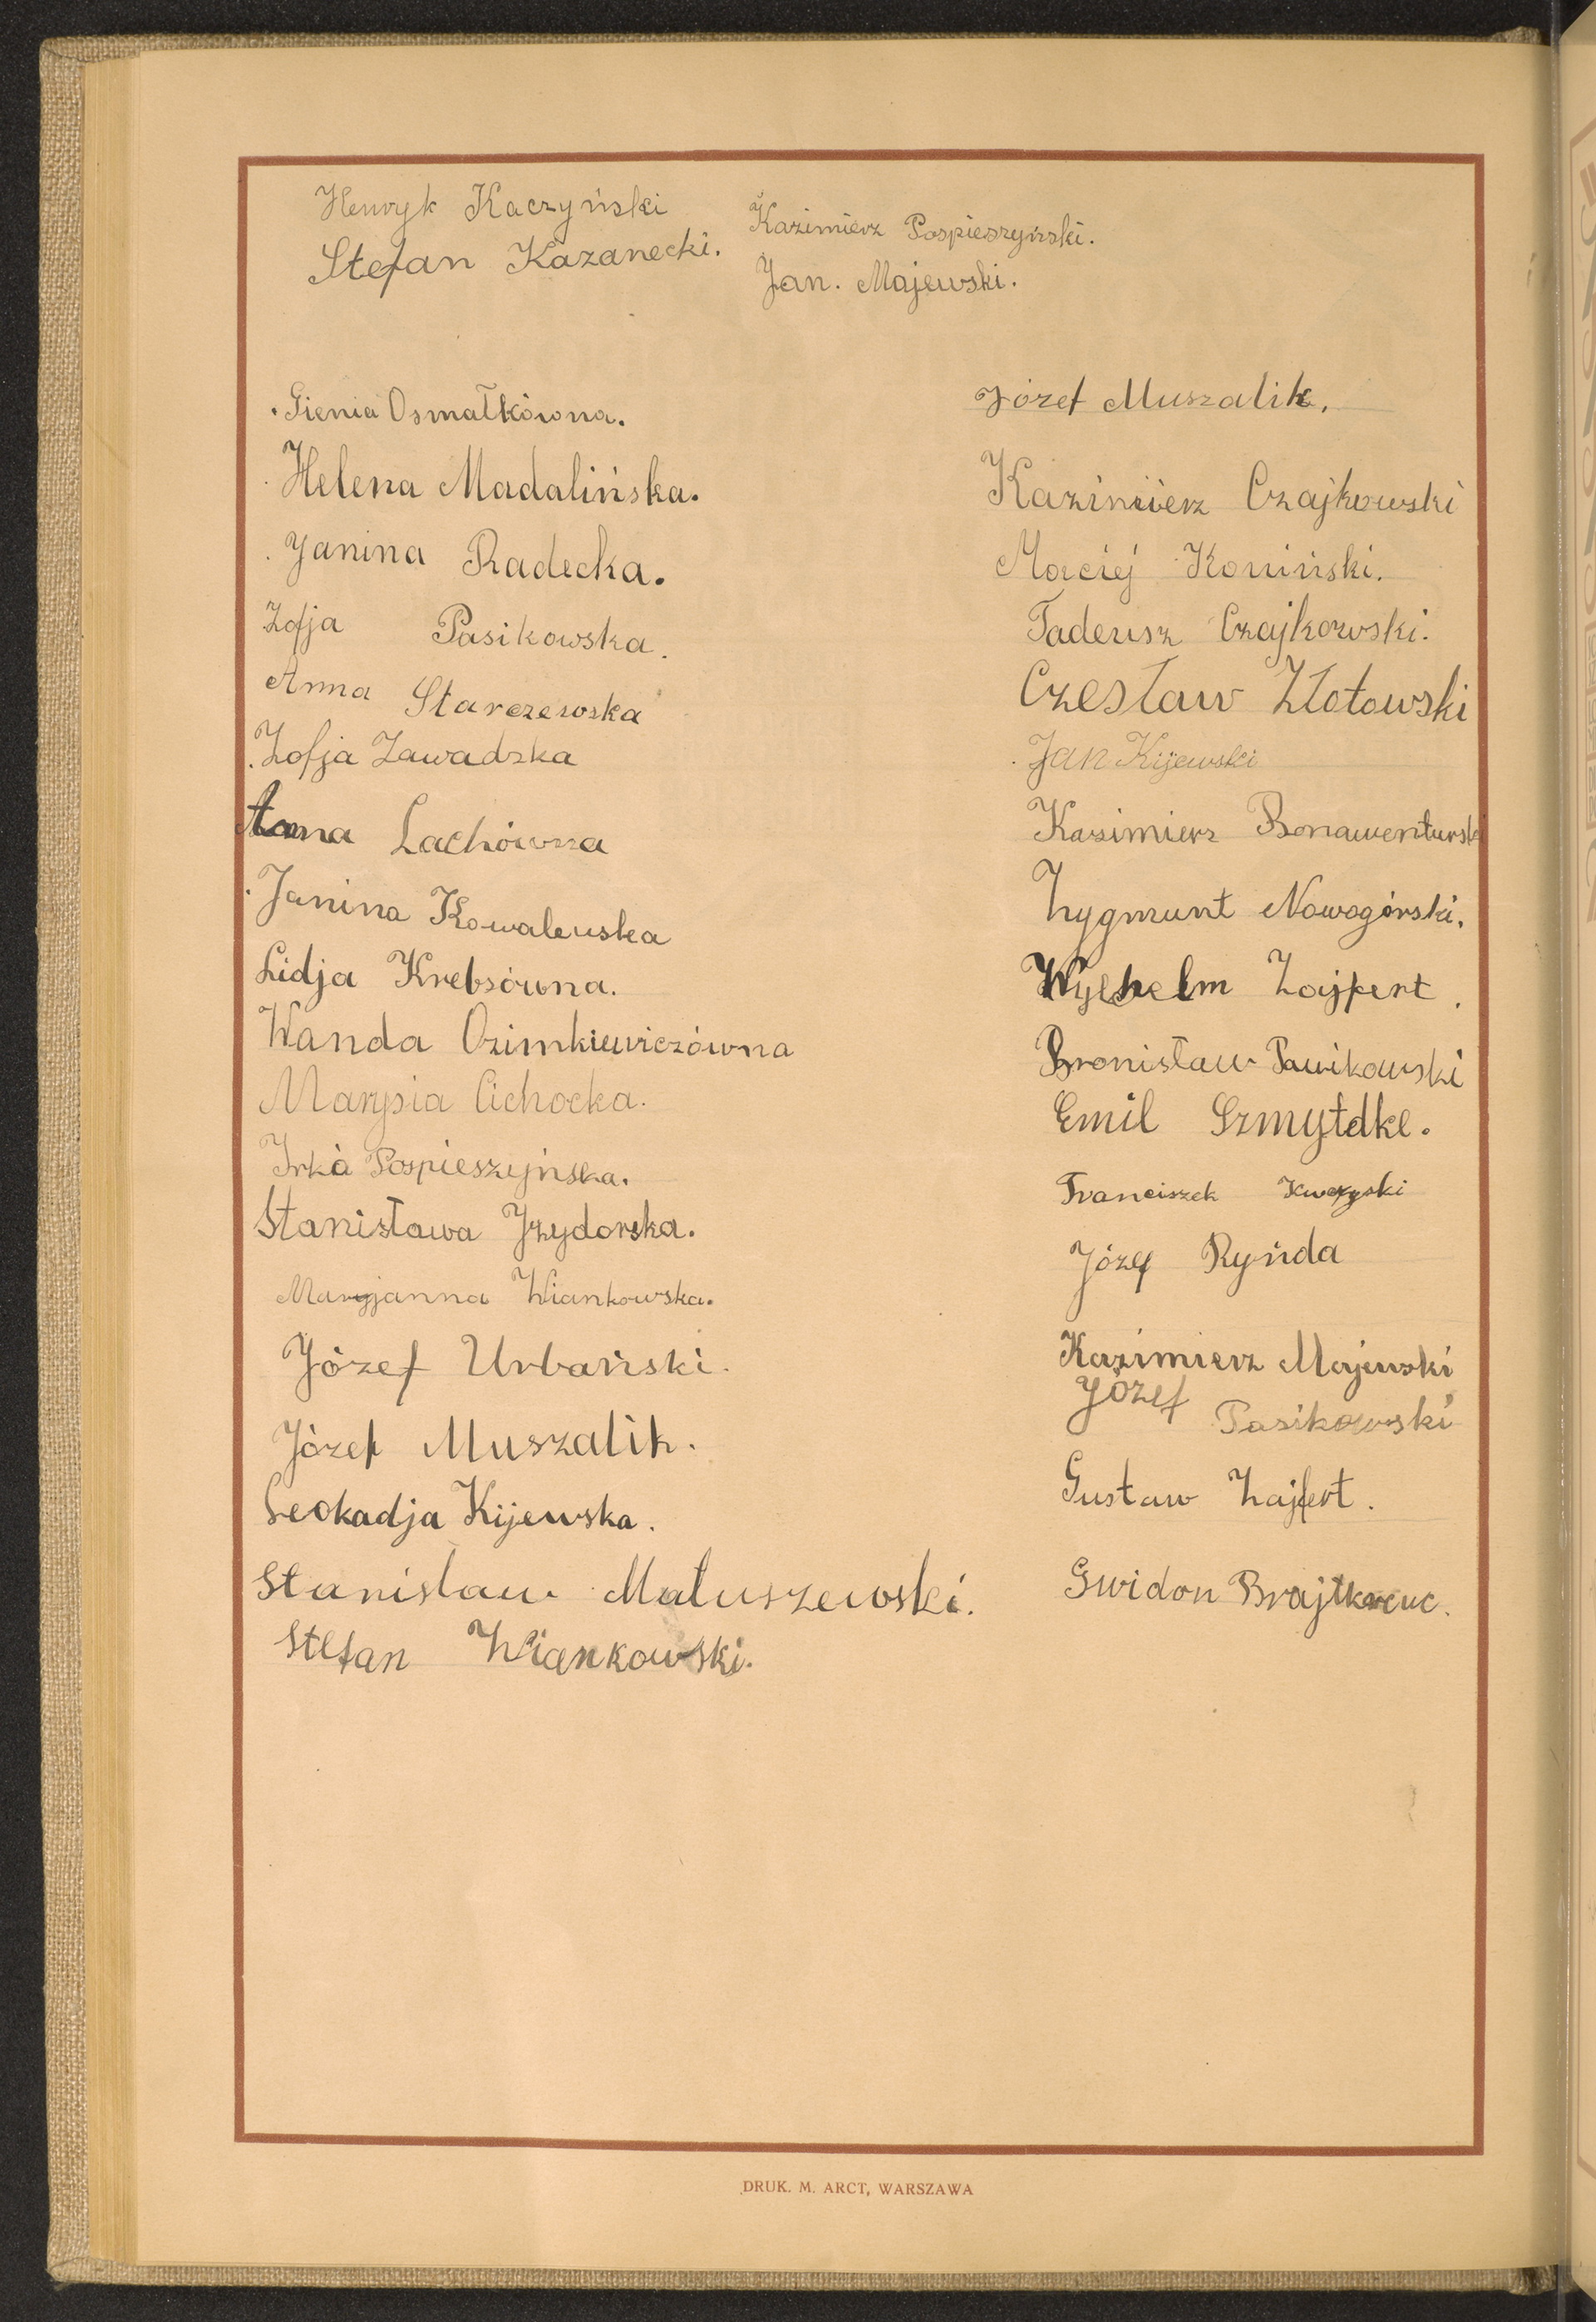 Henryk Kaczyński
Stefan Kazanecki.
Kazimierz Pospieszyński.
Jan. Majewski.
Gienia Osmałkówna.
Helena Madalińska.
Janina Radecka.
Zofja Pasikowska.
Anna Starczewska
Zofja Zawadzka
Anna Lachówna
Janina Kowalewska
Lidja Krebsówna.
Wanda Ozimkiewiczówna
Marysia Cichocka.
Irka Pospieszyńska.
Stanisława Izydorska.
Maryjanna Wiankowska.
Józef Urbański.
Józef Muszalik.
Leokadja Kijewska.
Stanisław Matuszewski.
Stefan Wiankowski.
Józef Muszalik.
Kazimierz Czajkowski
Maciej Koniński.
Tadeusz Czajkowski.
Czesław Złotowski
Jan Kijewski
Kazimierz Bonawenturski
Zygmunt Nowogórski.
Wylhelm Zajfert.
Bronisław Pawikowski
Emil Szmytdke.
Franciszek
Józef Ryńda
Kazimierz Majewski
Józef Pasikowski
Gustaw Zajfert.
Gwidon
DRUK. M. ARCT, WARSZAWA